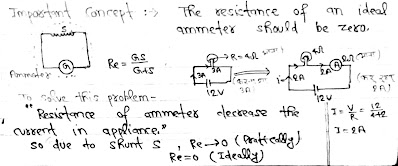 Important Concept :→ The resistance of an ideal
ammeter should be zero.
S
G
Ammeter
Re = GS
G+S
R=4Ω
3A
3A
12V
4Ω
2A
A
2Ω
2A
12V
I = V/R = 12/4+2
I = 2A
To solve this problem -
"Resistance of ammeter decrease the
current in appliance."
so due to shunt S , Re → 0 (Pratically)
Re = 0 (Ideally)